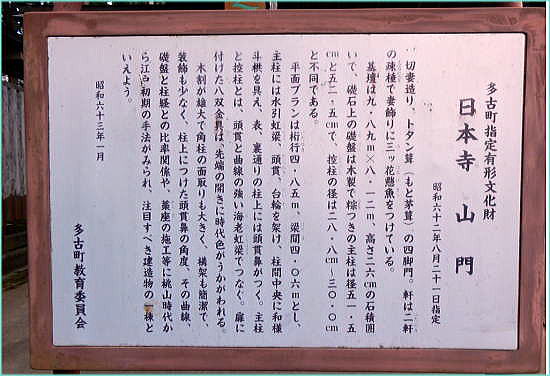 多古町指定有形文化財
日本寺 山門
昭和六十二年八月二十一日指定
切妻造り、トタン葺(もと茅葺)の四脚門。軒は二軒
の疎棰で妻飾りに三ッ花懸魚をつけている。
基壇は九・八九m×八・一二m、高さ二六cmの石積囲
いで、礎石上の礎盤は木製で粽つきの主柱は径五一・五
cmと五二・五cmで、控柱の径は二八・八cm〜三〇・〇cm
と不同である。
平面プランは桁行四・八五m、梁間四・〇六mとし、
主柱には水引虹梁、頭貫、台輪を架け、柱間中央に和様
斗栱を具え、表、裏通りの柱上には頭貫鼻がつく。主柱
と控柱とは、頭貫と曲線の強い海老虹梁でつなぐ。扉に
付けた八双金具は、先端の開きに時代色がうかがわれる。
木割が雄大で角柱の面取りも大きく、構架も簡潔で
装飾も少なく、柱上につけた頭貫鼻の角度、その曲線、
礎盤と柱経との比率関係や、藁座の施工等に桃山時代か
ら江戸初期の手法がみられ、注目すべき建造物の一棟と
いえよう。
昭和六十三年一月
多古町教育委員会